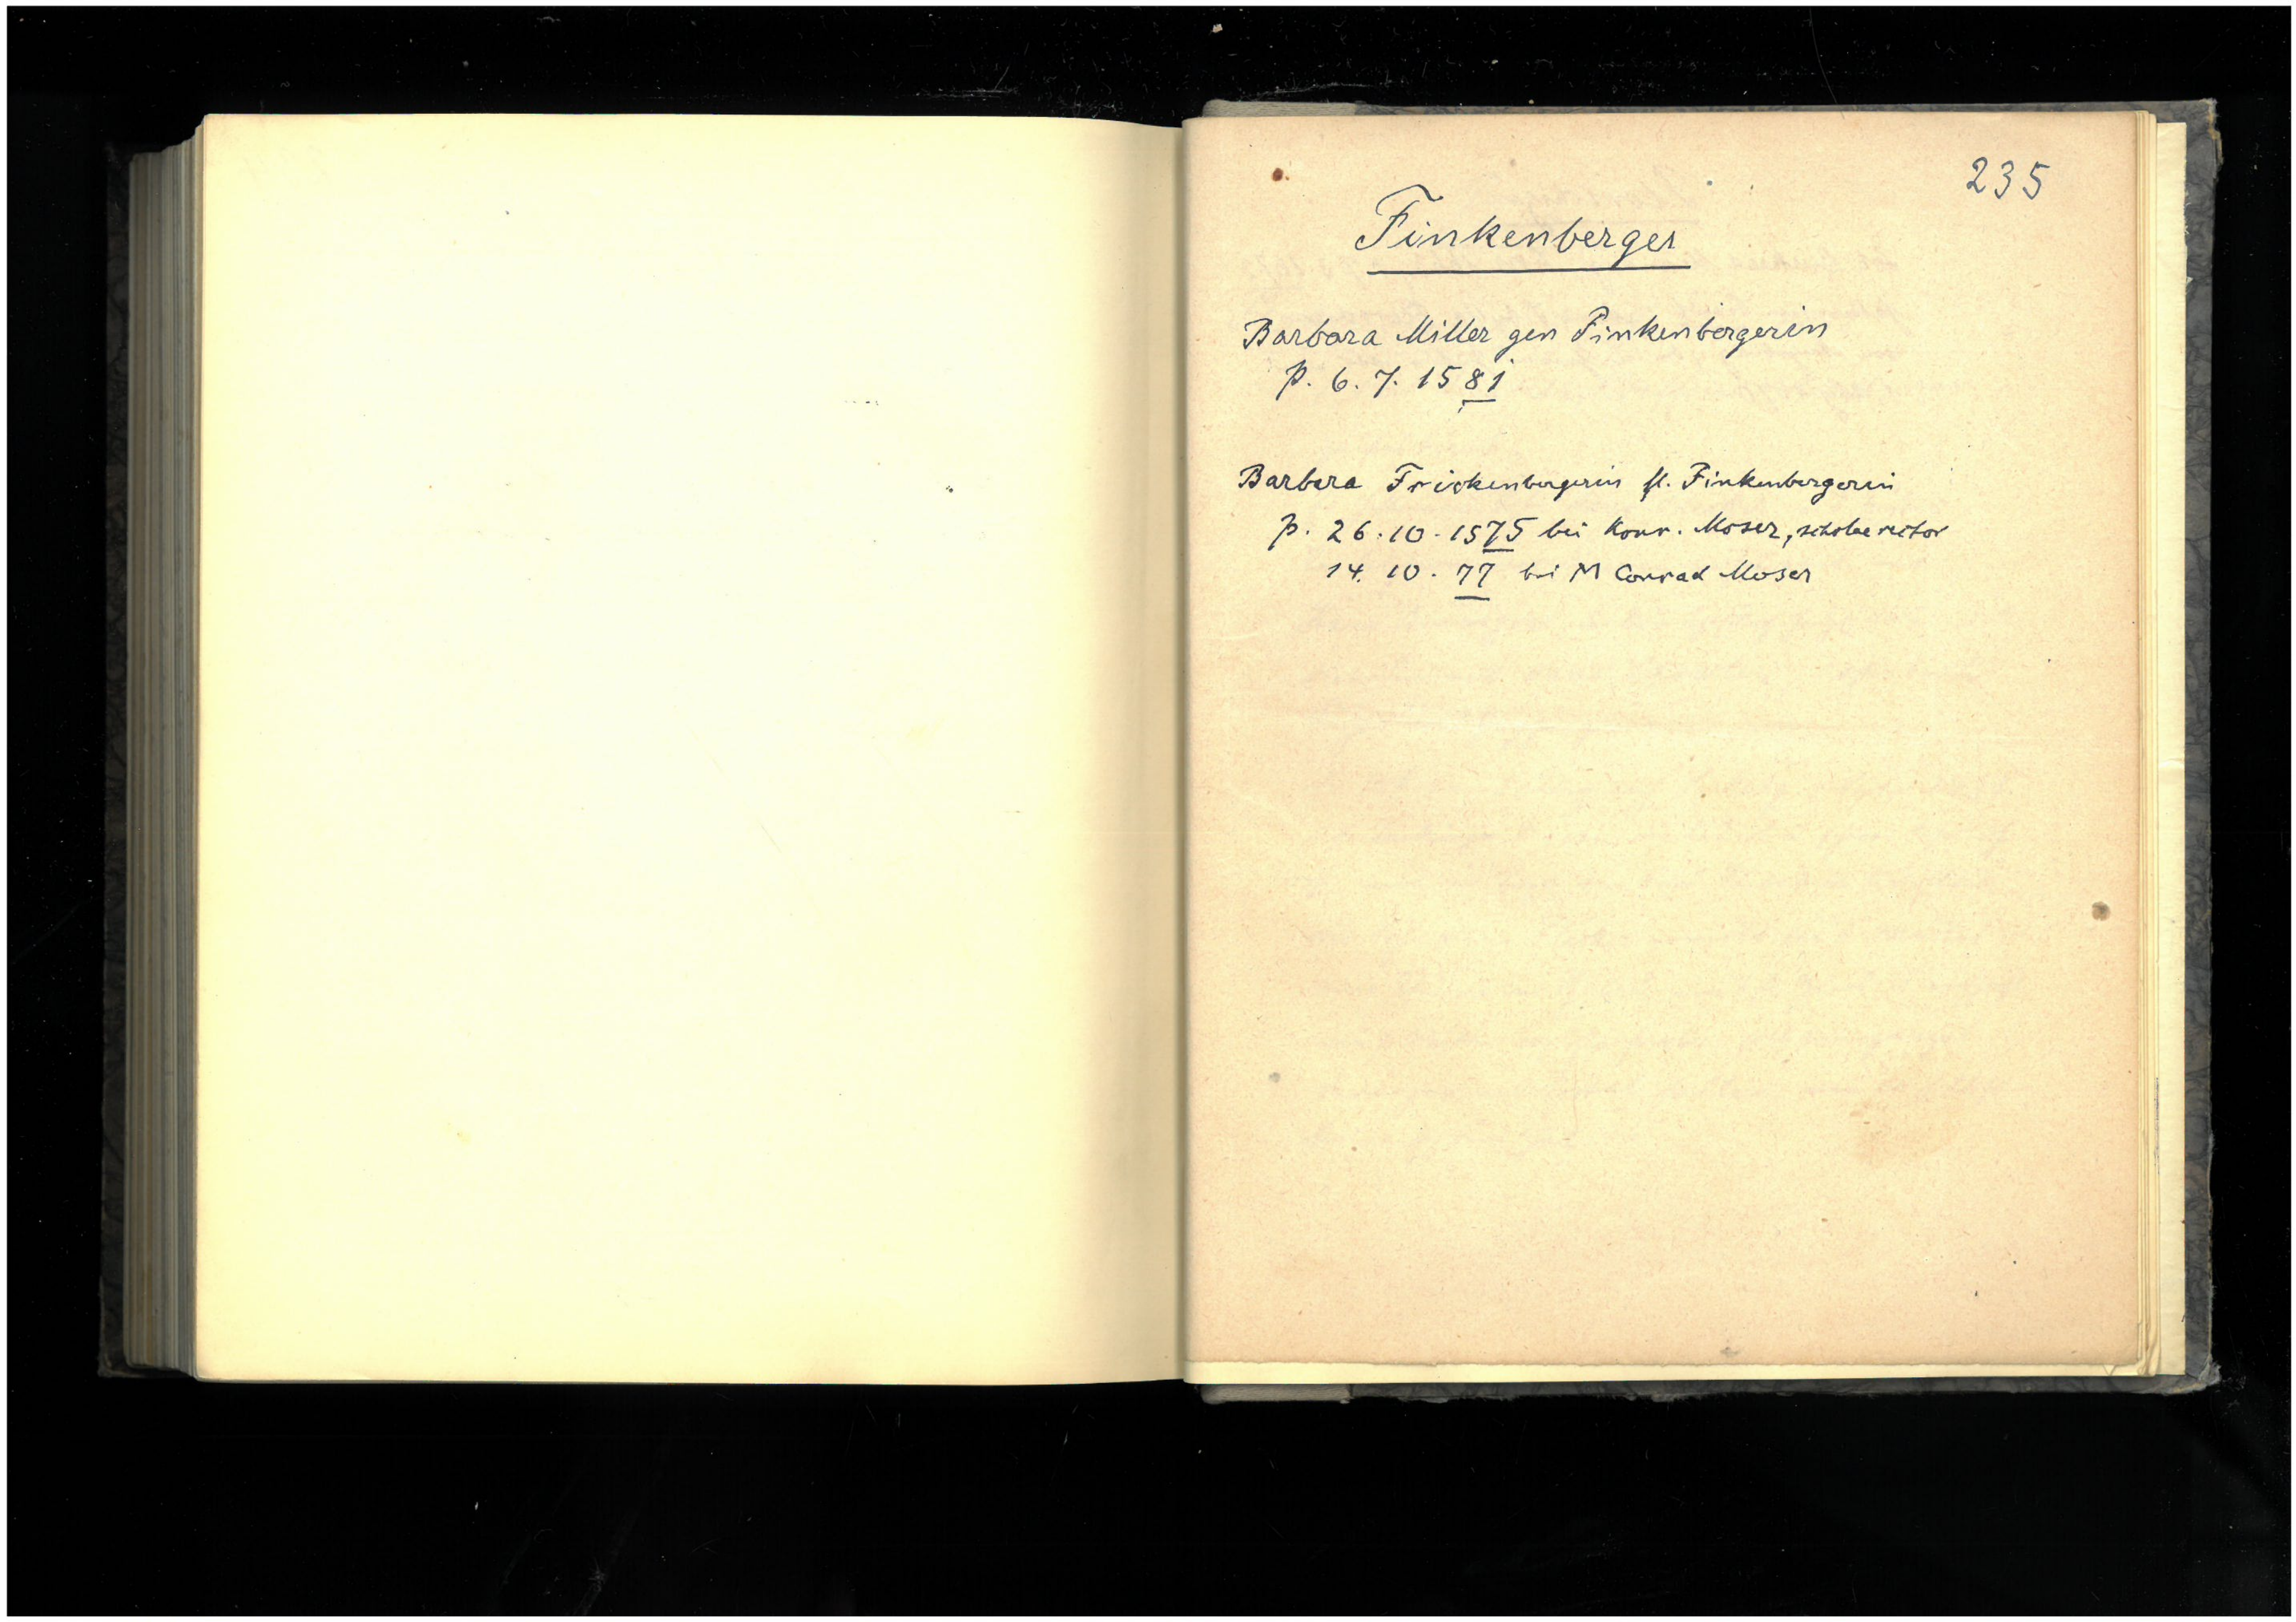 235
Finkenberger
Barbara Miller gen Finkenbergerin
p. 6. 7. 1581
Barbara Frickenbergerin fl. Finkenbergerin
p. 26. 10. 1575 bei Konr. Moser,
14. 10. 77 bei M Conrad Moser